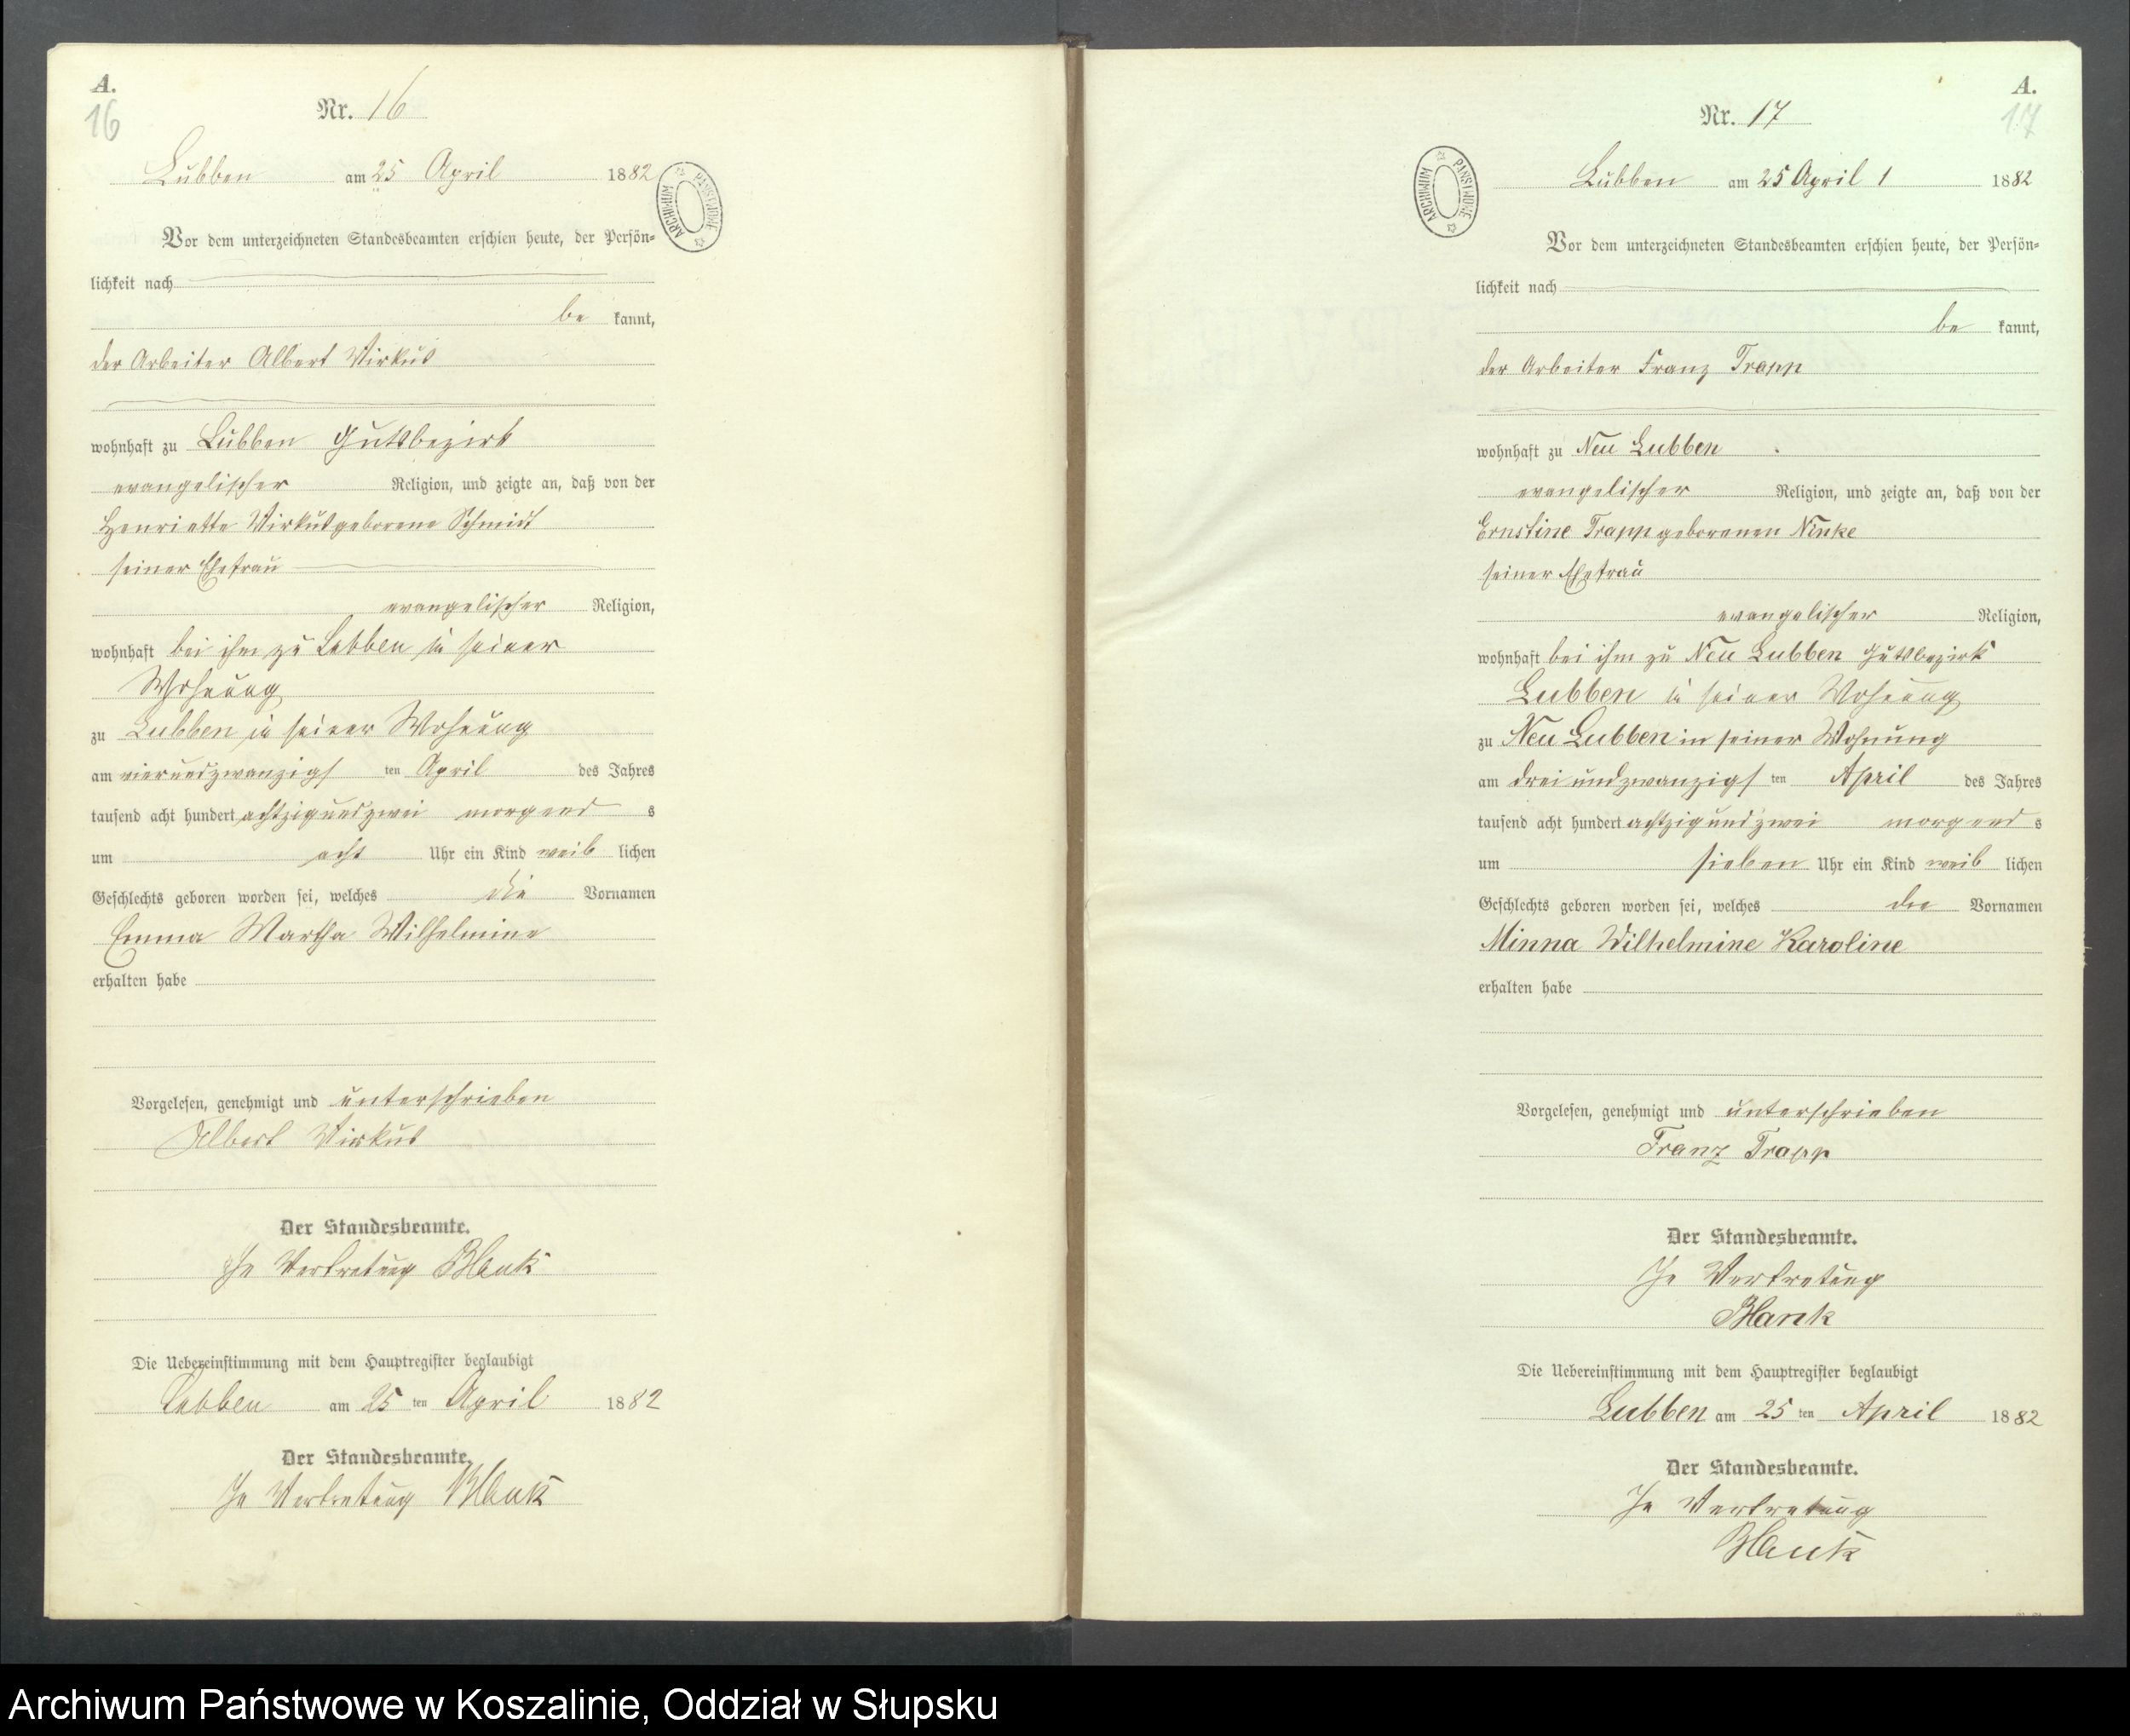 A.
16
Nr. 16
Lubben am 25 April 1882
ARCHIWUM PAŃSTWOWE
Vor dem unterzeichneten Standesbeamten erschien heute, der Persön-
lichkeit nach
be kannt,
der Arbeiter Albert Virkus
wohnhaft zu Lubben Gutsbezirk
evangelischer Religion, und zeigte an, daß von der
Henriette Virkus geborene Schmidt
seiner Ehefrau
evangelischer Religion,
wohnhaft bei ihm zu Lubben in seiner
Wohnung
zu Lubben in seiner Wohnung
am vierundzwanzigs ten April des Jahres
tausend acht hundert achtzigundzwei morgend s
um acht Uhr ein Kind weib lichen
Geschlechts geboren worden sei, welches die Vornamen
Emma Martha Wilhelmine
erhalten habe
Vorgelesen, genehmigt und unterschrieben
Albert Virkus
Der Standesbeamte.
In Vertretung Blank
Die Uebereinstimmung mit dem Hauptregister beglaubigt
Lubben am 25 ten April 1882
Der Standesbeamte.
In Vertretung Blank
A.
17
Nr. 17
ARCHIWUM PAŃSTWOWE
Lubben am 25 April 1 1882
Vor dem unterzeichneten Standesbeamten erschien heute, der Persön-
lichkeit nach
be kannt,
der Arbeiter Franz Trapp
wohnhaft zu Neu Lubben
evangelischer Religion, und zeigte an, daß von der
Ernstine Trapp geborenen Ninke
seiner Ehefrau
evangelischer Religion,
wohnhaft bei ihm zu Neu Lubben Gutsbezirk
Lubben in seiner Wohnung
zu Neu Lubben in seiner Wohnung
am drei undzwanzigs ten April des Jahres
tausend acht hundert achtzigundzwei morgend s
um sieben Uhr ein Kind weib lichen
Geschlechts geboren worden sei, welches die Vornamen
Minna Wilhelmine Karoline
erhalten habe
Vorgelesen, genehmigt und unterschrieben
Franz Trapp
Der Standesbeamte.
In Vertretung
Blank
Die Uebereinstimmung mit dem Hauptregister beglaubigt
Lubben am 25 ten April 1882
Der Standesbeamte.
In Vertretung
Blank
Archiwum Państwowe w Koszalinie, Oddział w Słupsku